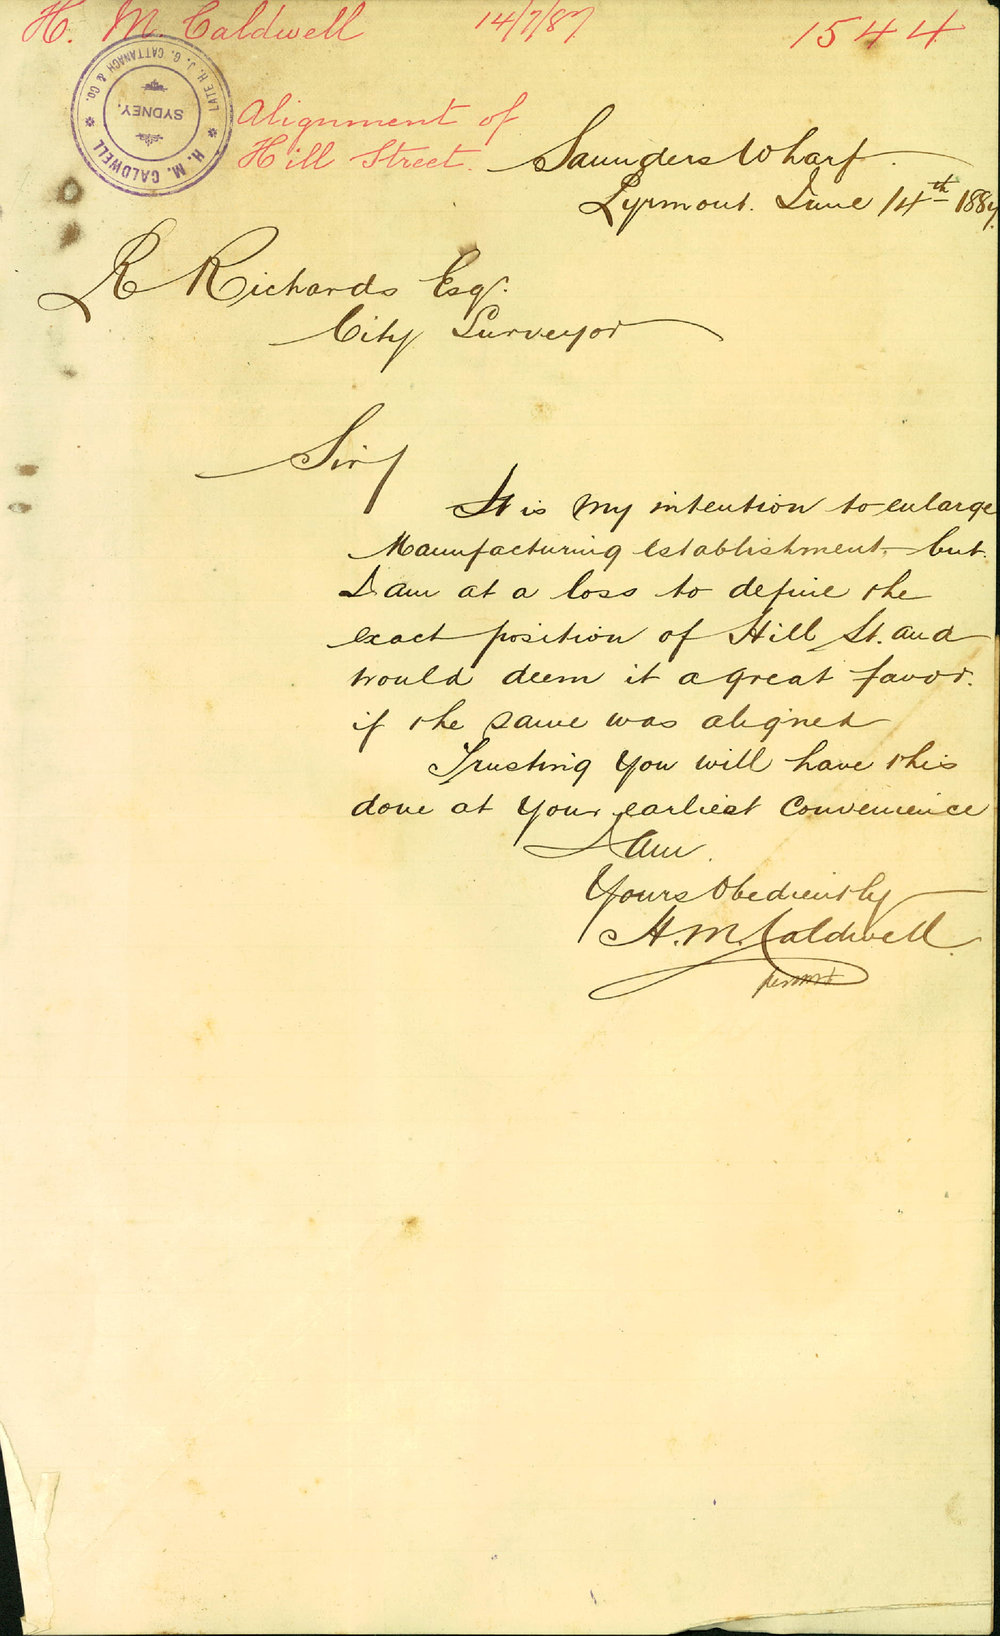 H. M. Caldwell 14/7/87 1544
H. M. CALDWELL
LATE H. J. G. CATTANACH & CO.
SYDNEY.
Alignment of
Hill Street.
Saunders Wharf.
Pyrmont. June 14th 1887.
R Richards Esq.
City Surveyor
Sir/
It is my intention to enlarge
Manufacturing establishment, but
I am at a loss to define the
exact position of Hill St. and
would deem it a great favor.
if the same was aligned
Trusting you will have this
done at your earliest convenience
I am.
Yours Obediently
H. M. Caldwell.